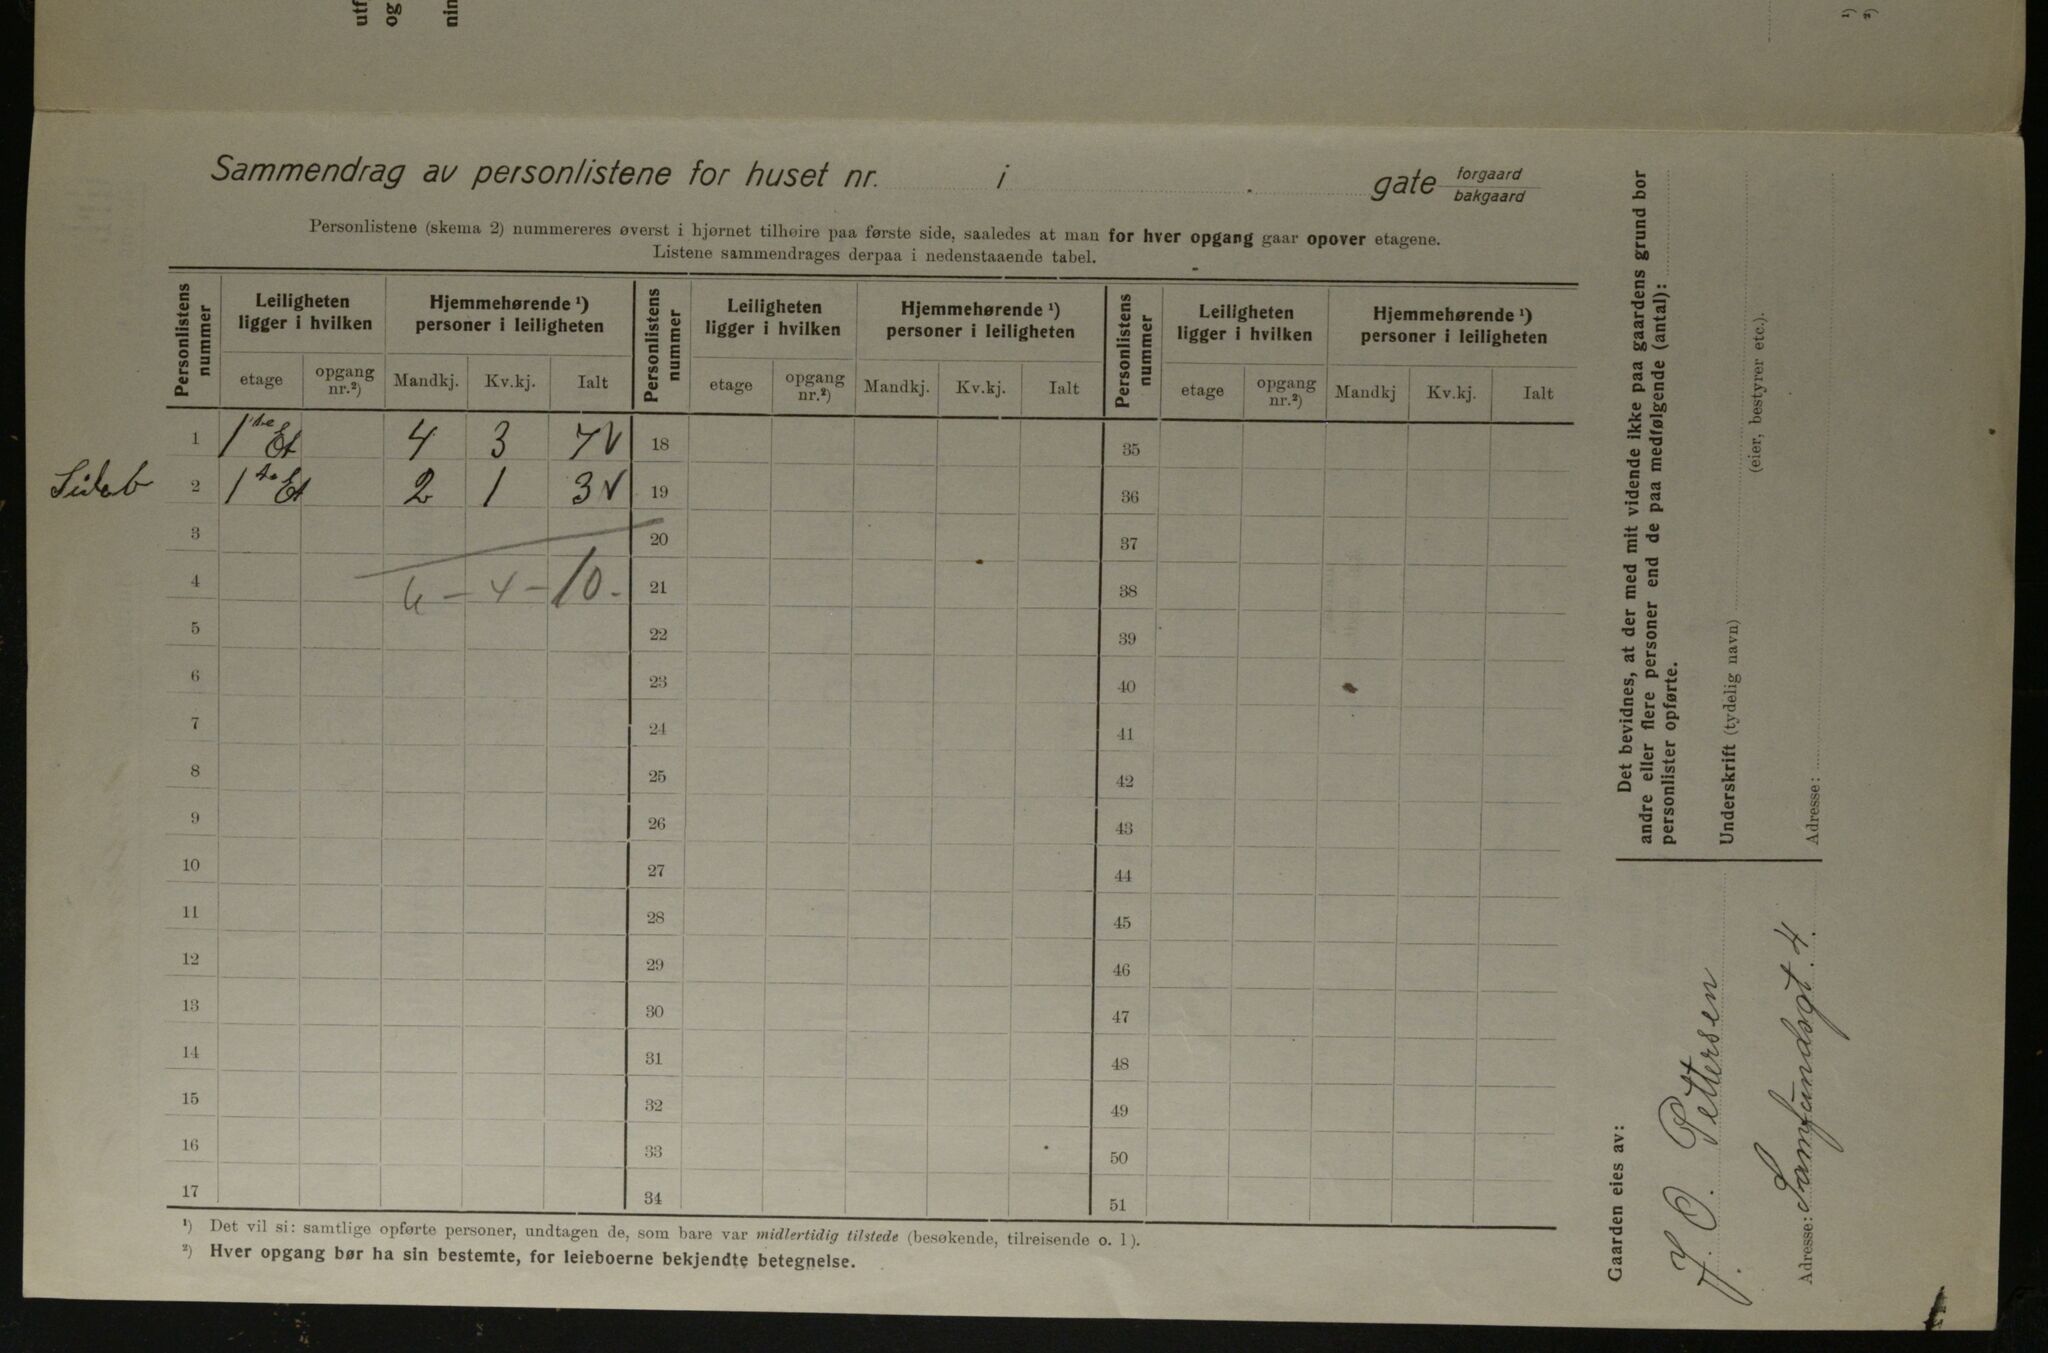 utf
og
nin
¹)
²)
Sammendrag av personlistene for huset nr. i gate forgaard
bakgaard
Personlistene (skema 2) nummereres øverst i hjørnet tilhøire paa første side, saaledes at man for hver opgang gaar opover etagene.
Listene sammendrages derpaa i nedenstaaende tabel.
Personlistens nummer Leiligheten ligger i hvilken Hjemmehørende ¹) personer i leiligheten Personlistens nummer Leiligheten ligger i hvilken Hjemmehørende ¹) personer i leiligheten Personlistens nummer Leiligheten ligger i hvilken Hjemmehørende ¹) personer i leiligheten
etage opgang nr.²) Mandkj. Kv.kj. Ialt etage opgang nr.²) Mandkj. Kv.kj. Ialt etage opgang nr.²) Mandkj Kv.kj. Ialt
1 1ste Et 4 3 7 V 18 35
2 1ste Et 2 1 3 V 19 36
3 20 37
4 6 - 4 - 10 - 21 38
5 22 39
6 23 40
7 24 41
8 25 42
9 26 43
10 27 44
11 28 45
12 29 46
13 30 47
14 31 48
15 32 49
16 33 50
17 34 51
¹) Det vil si: samtlige opførte personer, undtagen de, som bare var midlertidig tilstede (besøkende, tilreisende o. l.).
²) Hver opgang bør ha sin bestemte, for leieboerne bekjendte betegnelse.
Det bevidnes, at der med mit vidende ikke paa gaardens grund bor
andre eller flere personer end de paa medfølgende (antal):
personlister opførte.
Underskrift (tydelig navn)
(eier, bestyrer etc.).
Adresse:
Gaarden eies av:
J. O. Pettersen
Adresse: Samfundsgt. 4.